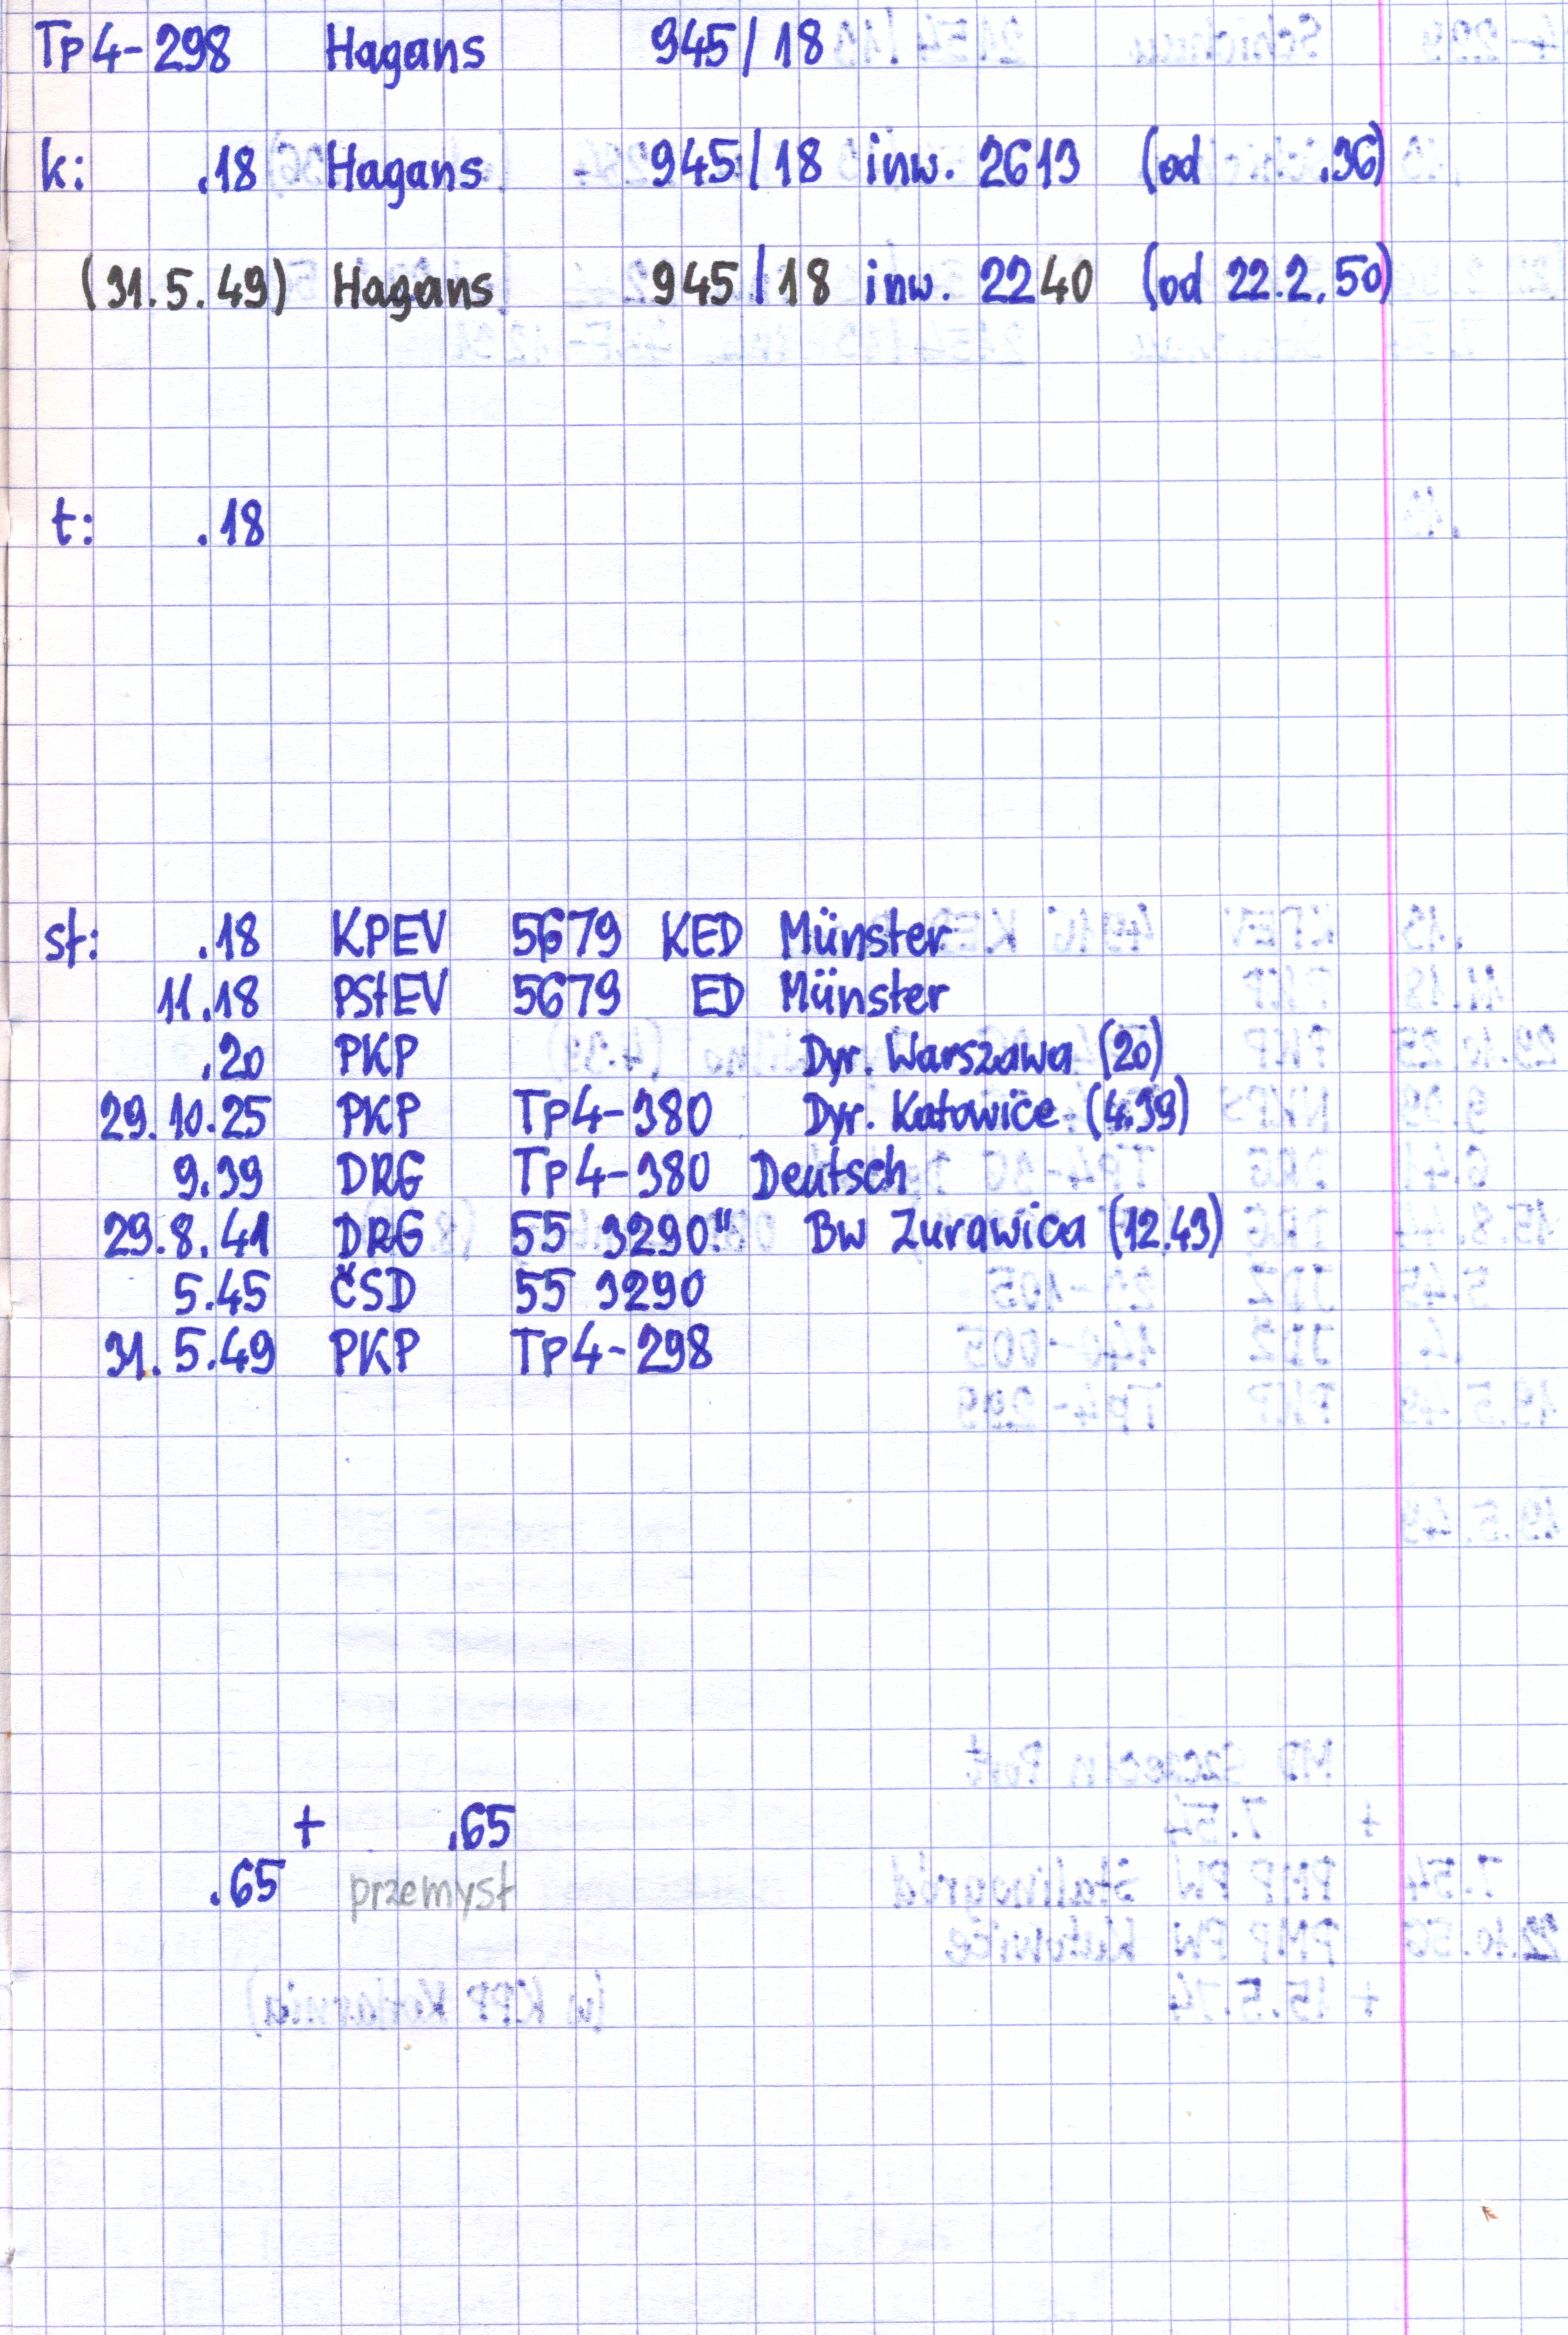 Tp4-298 Hagans 945/18
k: .18 Hagans 945/18 inw. 2613 (od .36)
(31.5.49) Hagans 945/18 inw. 2240 (od 22.2.50)
t: .18
st: .18 KPEV 5679 KED Münster
11.18 PStEV 5679 ED Münster
.20 PKP Dyr. Warszawa (20)
29.10.25 PKP Tp4-380 Dyr. Katowice (4.39)
9.39 DRG Tp4-380 Deutsch
29.8.41 DRG 55 3290" Bw Zurawica (12.43)
5.45 ČSD 55 3290
31.5.49 PKP Tp4-298
+ .65
.65 przemysł